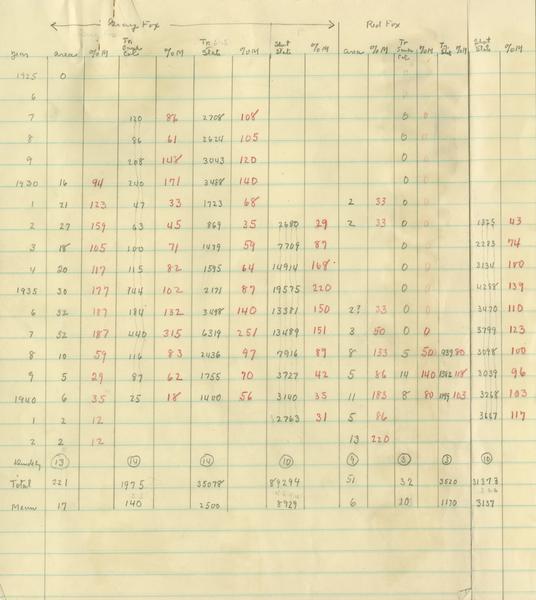 Gray Fox Red Fox
year area % M Tr Sauk Col % M Tr State % M Shot State % M area % M Tr Sauk Col % M Tr State % M Shot State % M
1925 0 0
6 0
7 120 86 2708 108 0 0
8 86 61 2624 105 0
9 208 148 3043 120 0
1930 16 94 240 171 3488 140 0
1 21 123 47 33 1723 68 2 33 0 0
2 27 159 63 45 869 35 2680 29 2 33 0 0 1325 43
3 18 105 100 71 1479 59 7709 87 0 0 2283 74
4 20 117 115 82 1595 64 14914 168 0 0 3134 100
1935 30 177 144 102 2171 87 19575 220 0 0 4288 139
6 32 187 184 132 3498 140 13381 150 2? 33 0 0 3470 110
7 32 187 440 315 6319 251 13489 151 3 50 0 0 3799 123
8 10 59 116 83 2436 97 7916 89 8 133 5 50 939 80 3098 100
9 5 29 87 62 1755 70 3727 42 5 86 14 140 1382 118 3039 96
1940 6 35 25 18 1400 56 3140 35 11 183 8 80 1199 103 3268 103
1 2 12 2763 31 5 86 3667 117
2 2 12 13 220
13 14 14 10 9 3 3 10
Total 221 1975 35078 89294 51 32 3520 31373
Mean 17 140 2500 8929 6 10 1170 3137